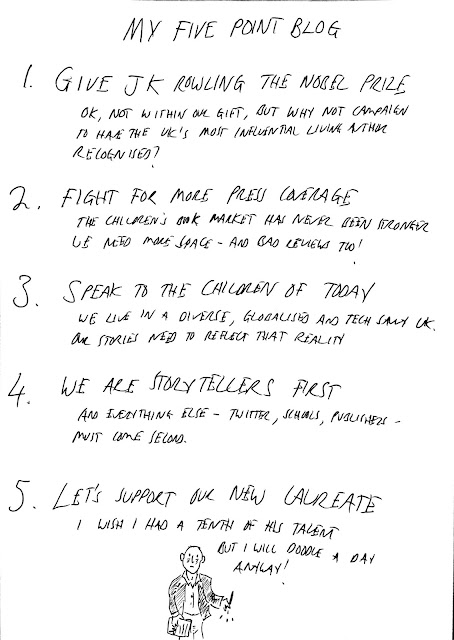 MY FIVE POINT BLOG
1. GIVE JK ROWLING THE NOBEL PRIZE
OK, NOT WITHIN OUR GIFT, BUT WHY NOT CAMPAIGN
TO HAVE THE UK'S MOST INFLUENTIAL LIVING AUTHOR
RECOGNISED?
2. FIGHT FOR MORE PRESS COVERAGE
THE CHILDREN'S BOOK MARKET HAS NEVER BEEN STRONGER
WE NEED MORE SPACE - AND BAD REVIEWS TOO!
3. SPEAK TO THE CHILDREN OF TODAY
WE LIVE IN A DIVERSE, GLOBALISED AND TECH SAVVY UK.
OUR STORIES NEED TO REFLECT THAT REALITY
4. WE ARE STORYTELLERS FIRST
AND EVERYTHING ELSE - TWITTER, SCHOOLS, PUBLISHERS -
MUST COME SECOND.
5. LET'S SUPPORT OUR NEW LAUREATE
I WISH I HAD A TENTH OF HIS TALENT
BUT I WILL DOODLE A DAY
ANYWAY!